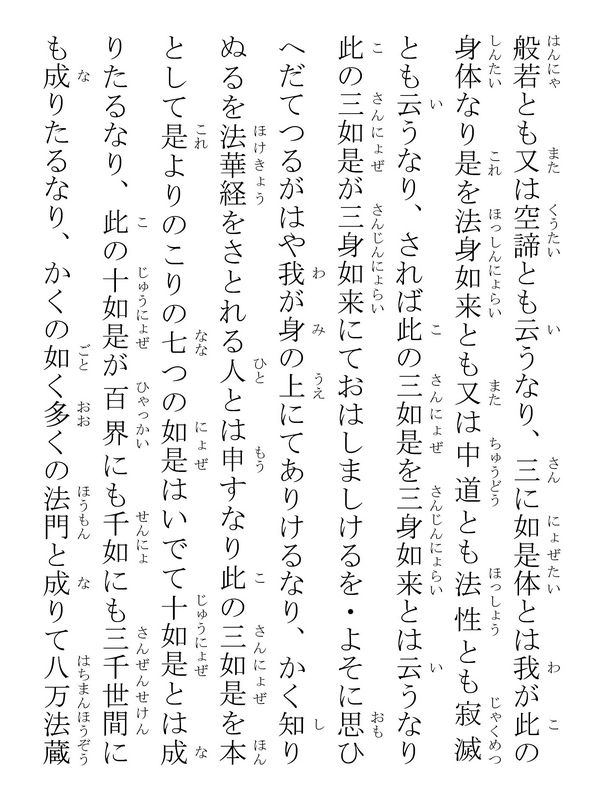 般若とも又は空諦とも云うなり、三に如是体とは我が此の
身体なり是を法身如来とも又は中道とも法性とも寂滅
とも云うなり、されば此の三如是を三身如来とは云うなり
此の三如是が三身如来にておはしましけるを・よそに思ひ
へだてつるがはや我が身の上にてありけるなり、かく知り
ぬるを法華経をさとれる人とは申すなり此の三如是を本
として是よりのこりの七つの如是はいでて十如是とは成
りたるなり、此の十如是が百界にも千如にも三千世間に
も成りたるなり、かくの如く多くの法門と成りて八万法蔵